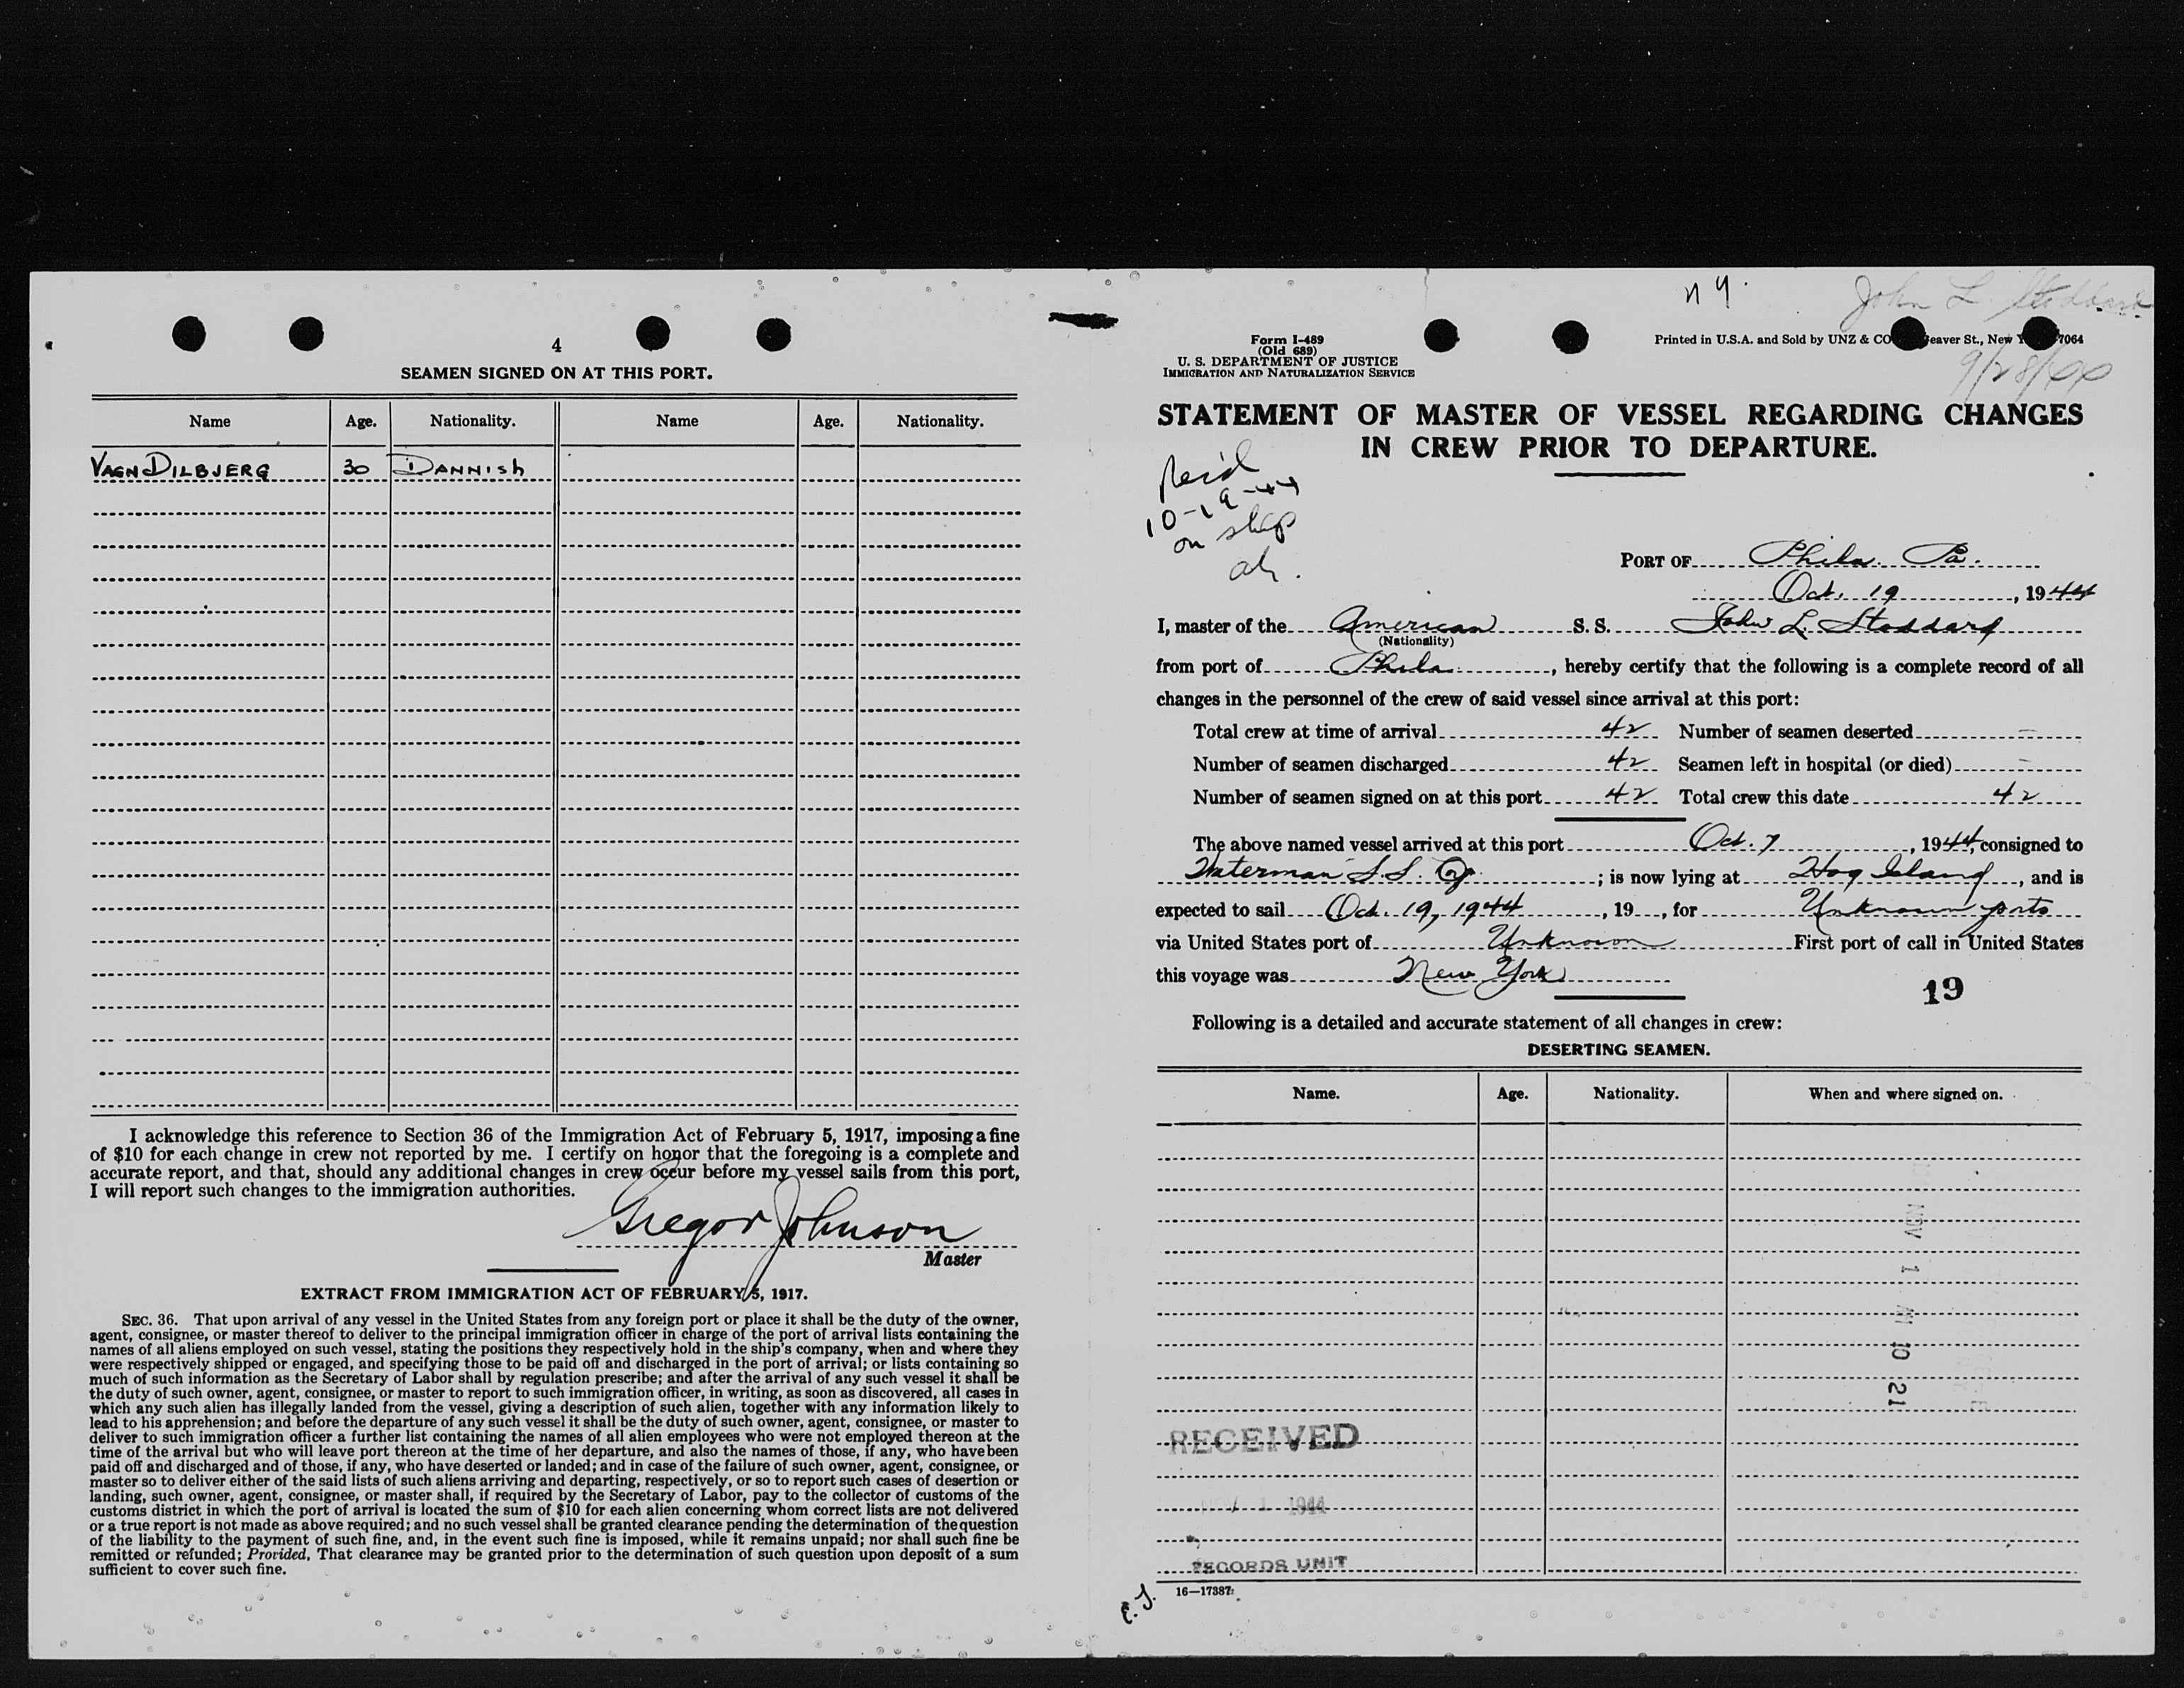 4
SEAMEN SIGNED ON AT THIS PORT.
Name Age. Nationality. Name Age. Nationality.
VAGN DILBJERG 30 DANNISh
I acknowledge this reference to Section 36 of the Immigration Act of February 5, 1917, imposing a fine
of $10 for each change in crew not reported by me. I certify on honor that the foregoing is a complete and
accurate report, and that, should any additional changes in crew occur before my vessel sails from this port,
I will report such changes to the immigration authorities.
Gregor Johnson
Master
EXTRACT FROM IMMIGRATION ACT OF FEBRUARY 5, 1917.
SEC. 36. That upon arrival of any vessel in the United States from any foreign port or place it shall be the duty of the owner,
agent, consignee, or master thereof to deliver to the principal immigration officer in charge of the port of arrival lists containing the
names of all aliens employed on such vessel, stating the positions they respectively hold in the ship's company, when and where they
were respectively shipped or engaged, and specifying those to be paid off and discharged in the port of arrival; or lists containing so
much of such information as the Secretary of Labor shall by regulation prescribe; and after the arrival of any such vessel it shall be
the duty of such owner, agent, consignee, or master to report to such immigration officer, in writing, as soon as discovered, all cases in
which any such alien has illegally landed from the vessel, giving a description of such alien, together with any information likely to
lead to his apprehension; and before the departure of any such vessel it shall be the duty of such owner, agent, consignee, or master to
deliver to such immigration officer a further list containing the names of all alien employees who were not employed thereon at the
time of the arrival but who will leave port thereon at the time of her departure, and also the names of those, if any, who have been
paid off and discharged and of those, if any, who have deserted or landed; and in case of the failure of such owner, agent, consignee, or
master so to deliver either of the said lists of such aliens arriving and departing, respectively, or so to report such cases of desertion or
landing, such owner, agent, consignee, or master shall, if required by the Secretary of Labor, pay to the collector of customs of the
customs district in which the port of arrival is located the sum of $10 for each alien concerning whom correct lists are not delivered
or a true report is not made as above required; and no such vessel shall be granted clearance pending the determination of the question
of the liability to the payment of such fine, and, in the event such fine is imposed, while it remains unpaid; nor shall such fine be
remitted or refunded; Provided, That clearance may be granted prior to the determination of such question upon deposit of a sum
sufficient to cover such fine.
n y.
John L Stoddard
Form I-489
(Old 689)
U. S. DEPARTMENT OF JUSTICE
IMMIGRATION AND NATURALIZATION SERVICE
Printed in U.S.A. and Sold by UNZ & CO eaver St., New 7064
STATEMENT OF MASTER OF VESSEL REGARDING CHANGES
IN CREW PRIOR TO DEPARTURE.
Rec'd
10-19-44
on ship
PORT OF Phila. Pa.
Oct. 19, 1944
I, master of the American S. S. John L. Stoddard
(Nationality)
from port of Phila., hereby certify that the following is a complete record of all
changes in the personnel of the crew of said vessel since arrival at this port:
Total crew at time of arrival 42 Number of seamen deserted -
Number of seamen discharged 42 Seamen left in hospital (or died) -
Number of seamen signed on at this port 42 Total crew this date 42
The above named vessel arrived at this port Oct. 7, 1944, consigned to
Waterman S.S. Co; is now lying at Hog Island, and is
expected to sail Oct. 19, 1944, 19 , for Unknown ports
via United States port of Unknown First port of call in United States
this voyage was New York
19
Following is a detailed and accurate statement of all changes in crew:
DESERTING SEAMEN.
Name. Age. Nationality. When and where signed on.
NOV 1 10 21
RECEIVED
NOV 1 1944
RECORDS UNIT
16—17387
E. J.